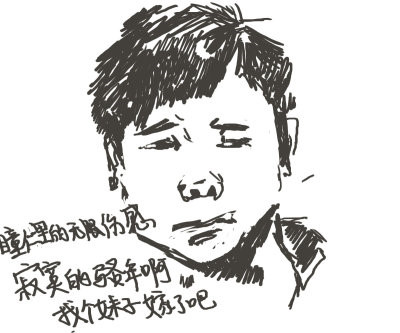 瞳仁里的无限伤感
寂寞的骚年啊
找个妹子嫁了吧